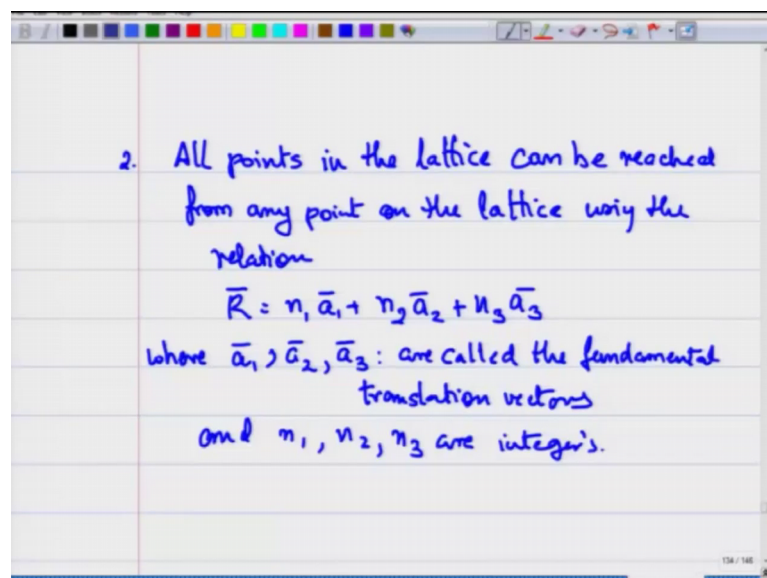 2. All points in the lattice can be reached
from any point on the lattice using the
relation
R̄ = n₁ ā₁ + n₂ ā₂ + n₃ ā₃
where ā₁, ā₂, ā₃ : are called the fundamental
translation vectors
and n₁, n₂, n₃ are integer's.
134 / 146